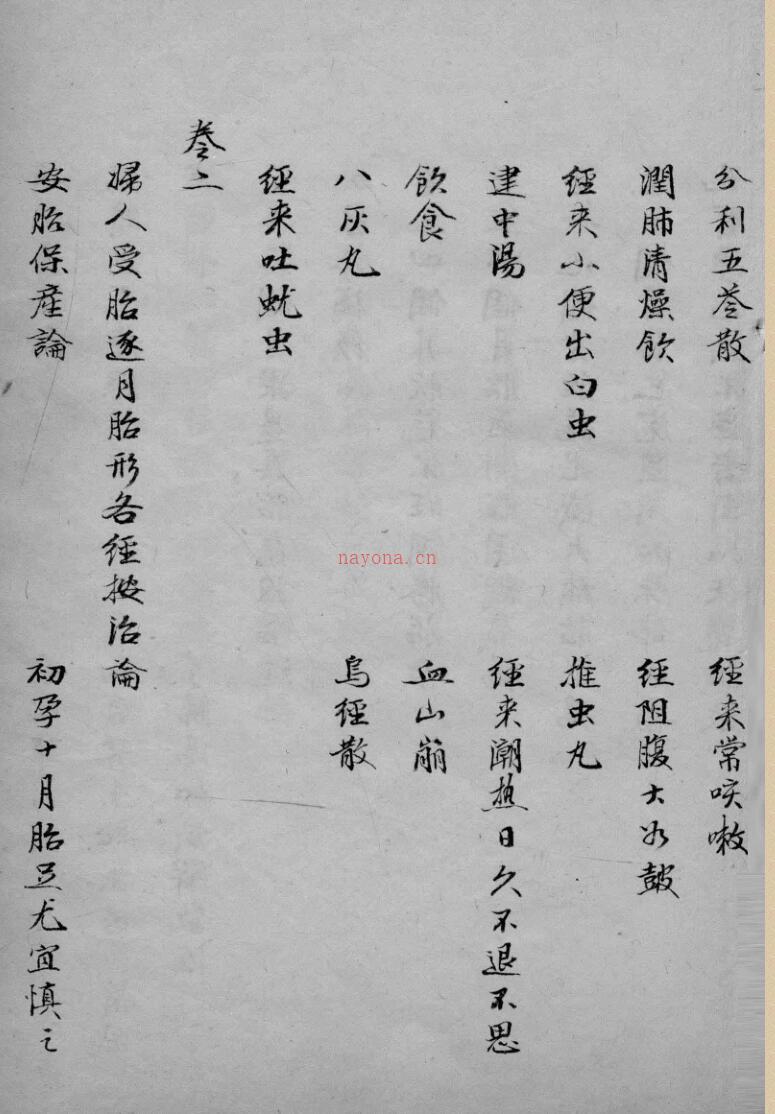 分利五苓散　經来常咳嗽
潤肺清燥飲　經阻腹大如皷
經来小便出白虫　推虫丸
建中湯　經来潮热日久不退不思
飲食　血山崩
八灰丸　烏經散
經来吐蚘虫
卷二
婦人受胎逐月胎形各經按治論
安胎保產論　初孕十月胎足尤宜慎之
nayona.cn